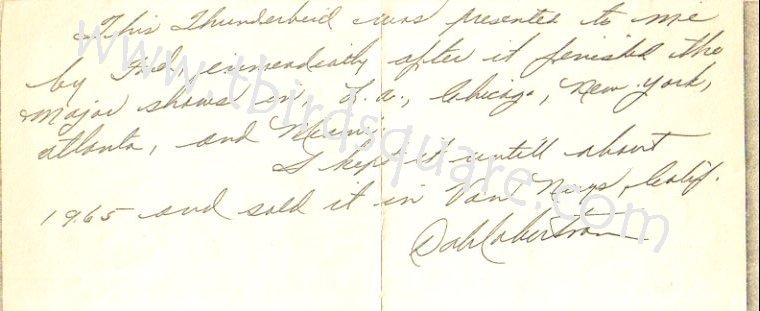 This Thunderbird was presented to me
by Ford, immediately after it finished the
Major shows in, L.a., Chicago, New York,
Atlanta, and Miami.
I kept it untill about
1965 and sold it in Van Nuys, Calif.
Dale Robertson
www.tbirdsquare.com